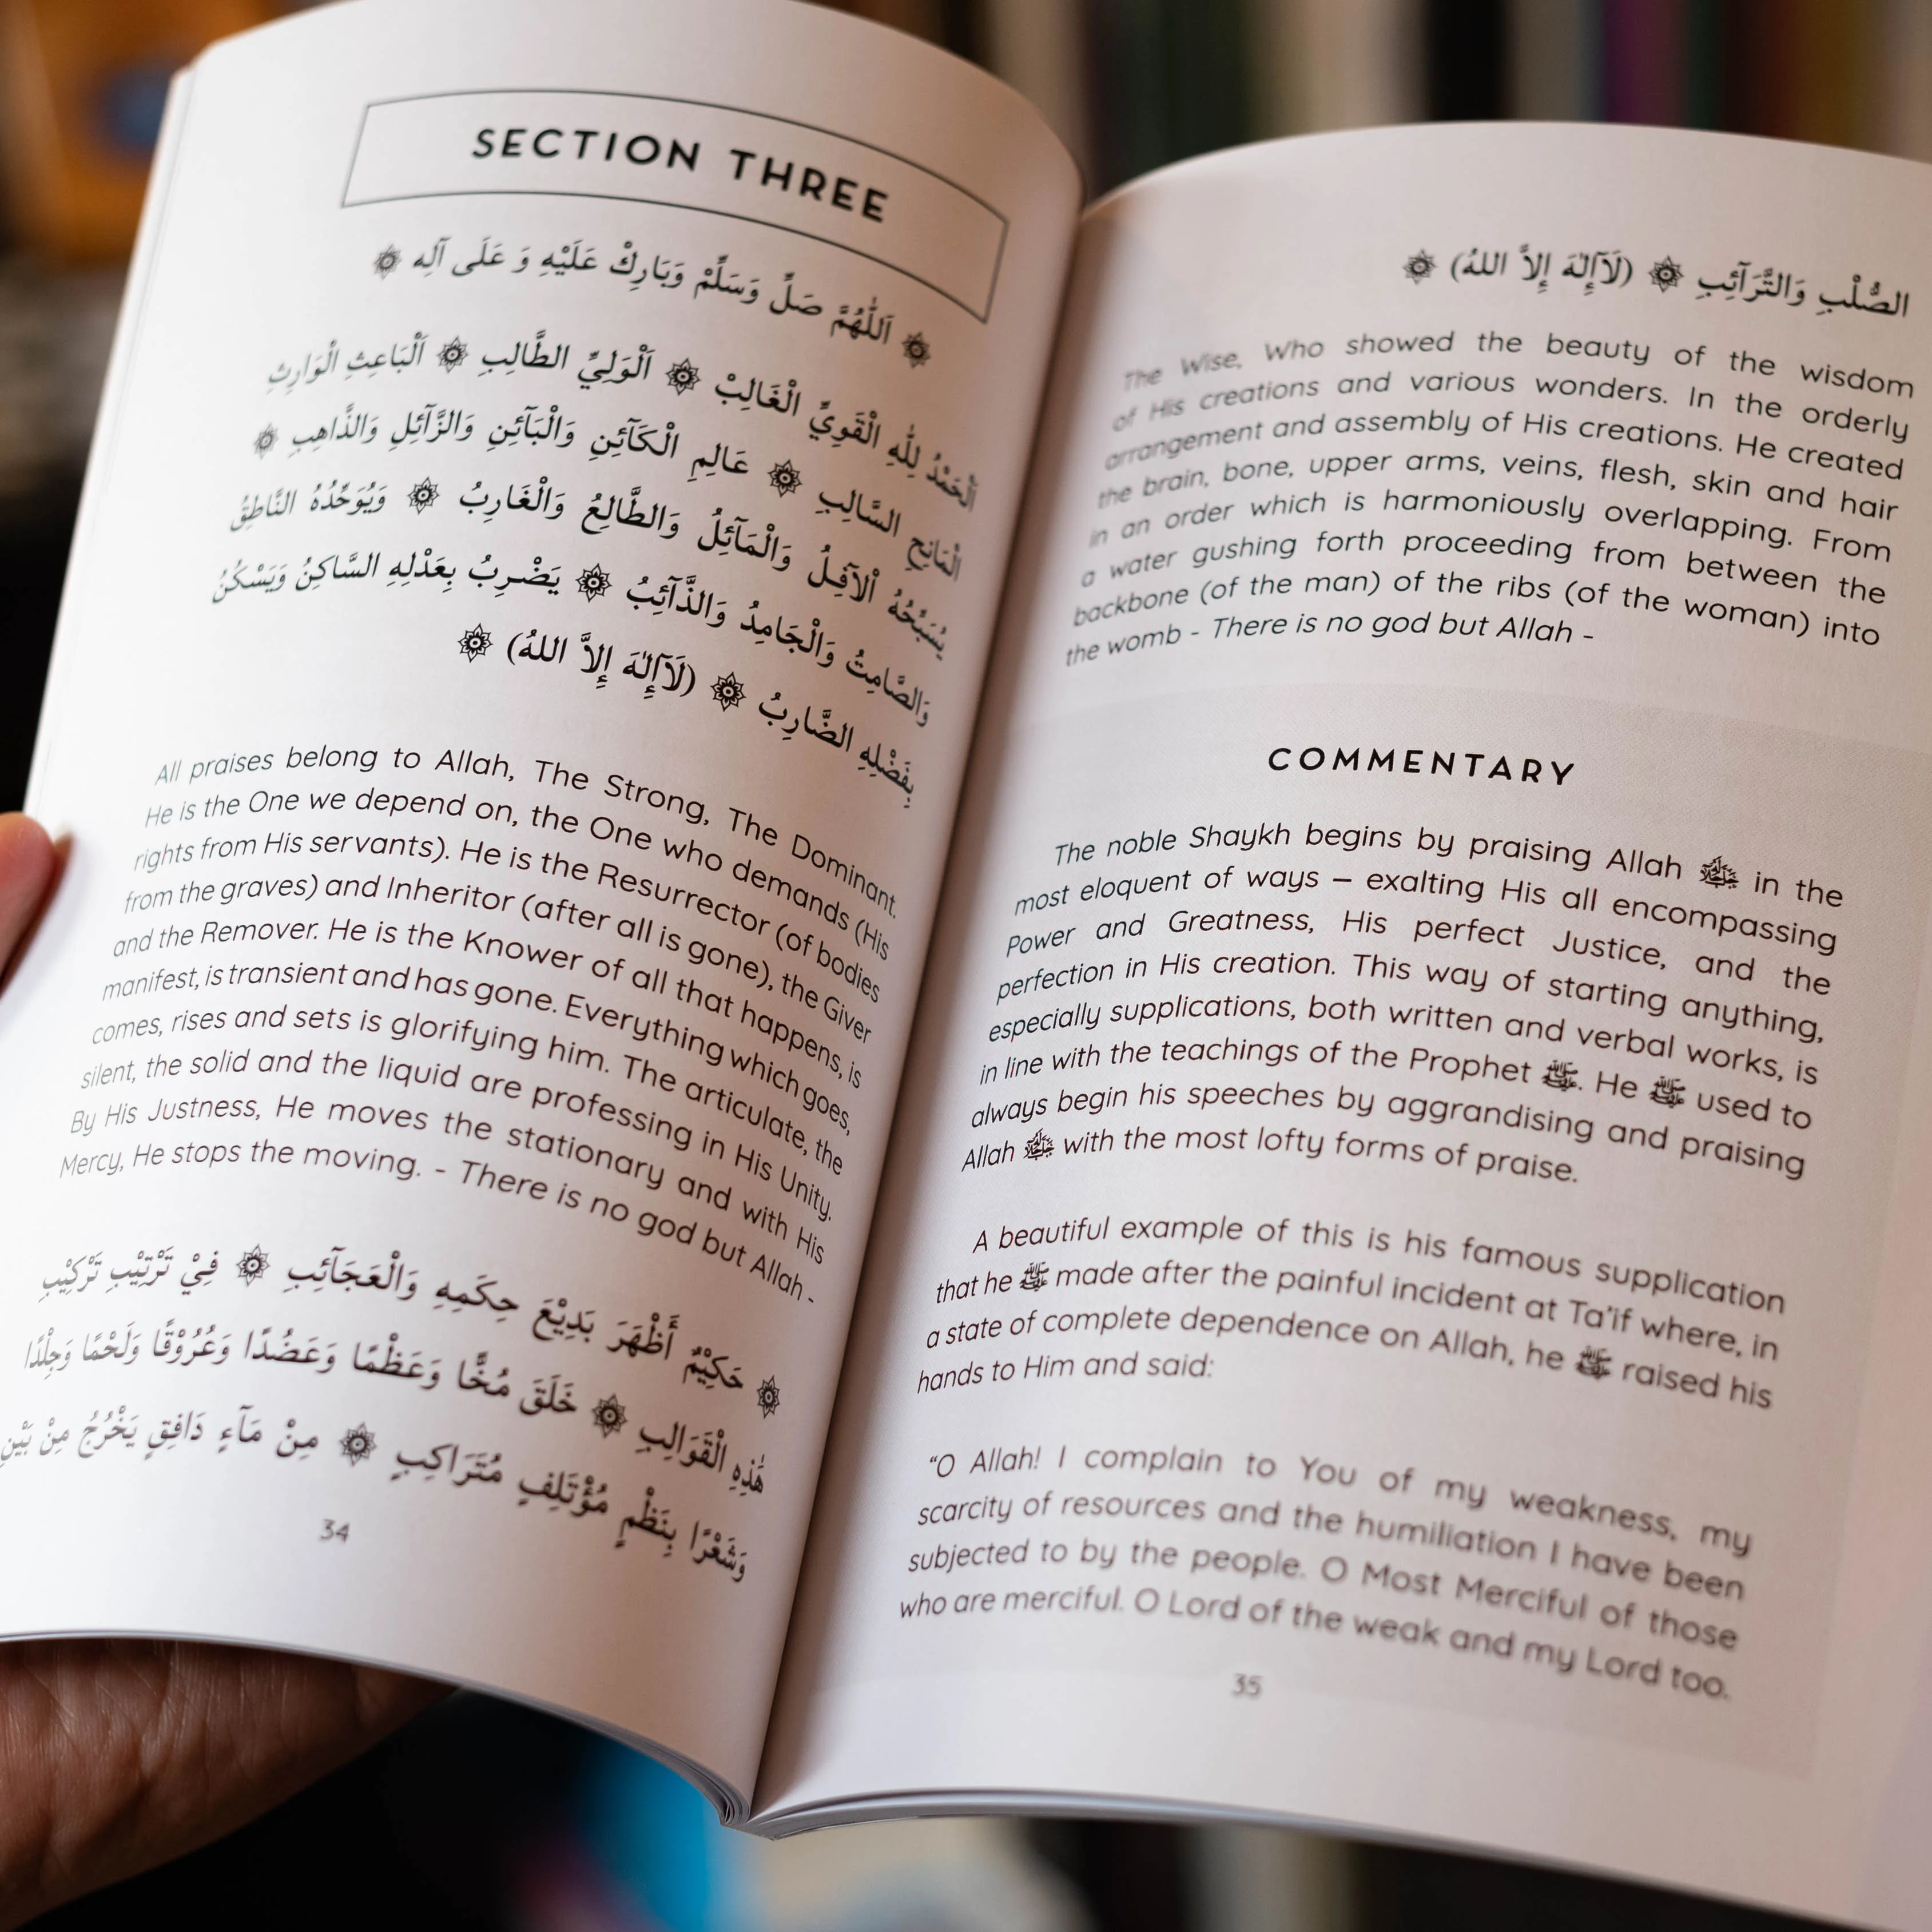 SECTION THREE
اَللّٰهُمَّ صَلِّ وَسَلِّمْ وَبَارِكْ عَلَيْهِ وَ عَلَى آلِه
اَلْحَمْدُ لِلّٰهِ الْقَوِيِّ الْغَالِبْ ۞ اَلْوَلِيِّ الطَّالِبِ ۞ اَلْبَاعِثِ الْوَارِثِ
الْمَانِحِ السَّالِبِ ۞ عَالِمِ الْكَآئِنِ وَالْبَآئِنِ وَالزَّآئِلِ وَالذَّاهِبِ ۞
يُسَبِّحُهُ اْلآفِلُ وَالْمَآئِلُ وَالطَّالِعُ وَالْغَارِبُ ۞ وَيُوَحِّدُهُ النَّاطِقُ
وَالصَّامِتُ وَالْجَامِدُ وَالذَّآئِبُ ۞ يَضْرِبُ بِعَدْلِهِ السَّاكِنُ وَيَسْكُنُ
بِفَضْلِهِ الضَّارِبُ ۞ (لَآإِلٰهَ إِلاَّ اللهُ) ۞
All praises belong to Allah, The Strong, The Dominant.
He is the One we depend on, the One who demands (His
rights from His servants). He is the Resurrector (of bodies
from the graves) and Inheritor (after all is gone), the Giver
and the Remover. He is the Knower of all that happens, is
manifest, is transient and has gone. Everything which goes,
comes, rises and sets is glorifying him. The articulate, the
silent, the solid and the liquid are professing in His Unity.
By His Justness, He moves the stationary and with His
Mercy, He stops the moving. - There is no god but Allah -
۞ حَكِيْمٌ أَظْهَرَ بَدِيْعَ حِكَمِهِ وَالْعَجَآئِبِ ۞ فِيْ تَرْتِيْبِ تَرْكِيْبِ
هٰذِهِ الْقَوَالِبِ ۞ خَلَقَ مُخًّا وَعَظْمًا وَعَضُدًا وَعُرُوْقًا وَلَحْمًا وَجِلْدًا
وَشَعْرًا بِنَظْمٍ مُؤْتَلِفٍ مُتَرَاكِبٍ ۞ مِنْ مَآءٍ دَافِقٍ يَخْرُجُ مِنْ بَيْنِ
34
الصُّلْبِ وَالتَّرَآئِبِ ۞ (لَآإِلٰهَ إِلاَّ اللهُ) ۞
The Wise, Who showed the beauty of the wisdom
of His creations and various wonders. In the orderly
arrangement and assembly of His creations. He created
the brain, bone, upper arms, veins, flesh, skin and hair
in an order which is harmoniously overlapping. From
a water gushing forth proceeding from between the
backbone (of the man) of the ribs (of the woman) into
the womb - There is no god but Allah -
COMMENTARY
The noble Shaykh begins by praising Allah ﷻ in the
most eloquent of ways – exalting His all encompassing
Power and Greatness, His perfect Justice, and the
perfection in His creation. This way of starting anything,
especially supplications, both written and verbal works, is
in line with the teachings of the Prophet ﷺ. He ﷺ used to
always begin his speeches by aggrandising and praising
Allah ﷻ with the most lofty forms of praise.
A beautiful example of this is his famous supplication
that he ﷺ made after the painful incident at Ta'if where, in
a state of complete dependence on Allah, he ﷺ raised his
hands to Him and said:
“O Allah! I complain to You of my weakness, my
scarcity of resources and the humiliation I have been
subjected to by the people. O Most Merciful of those
who are merciful. O Lord of the weak and my Lord too.
35